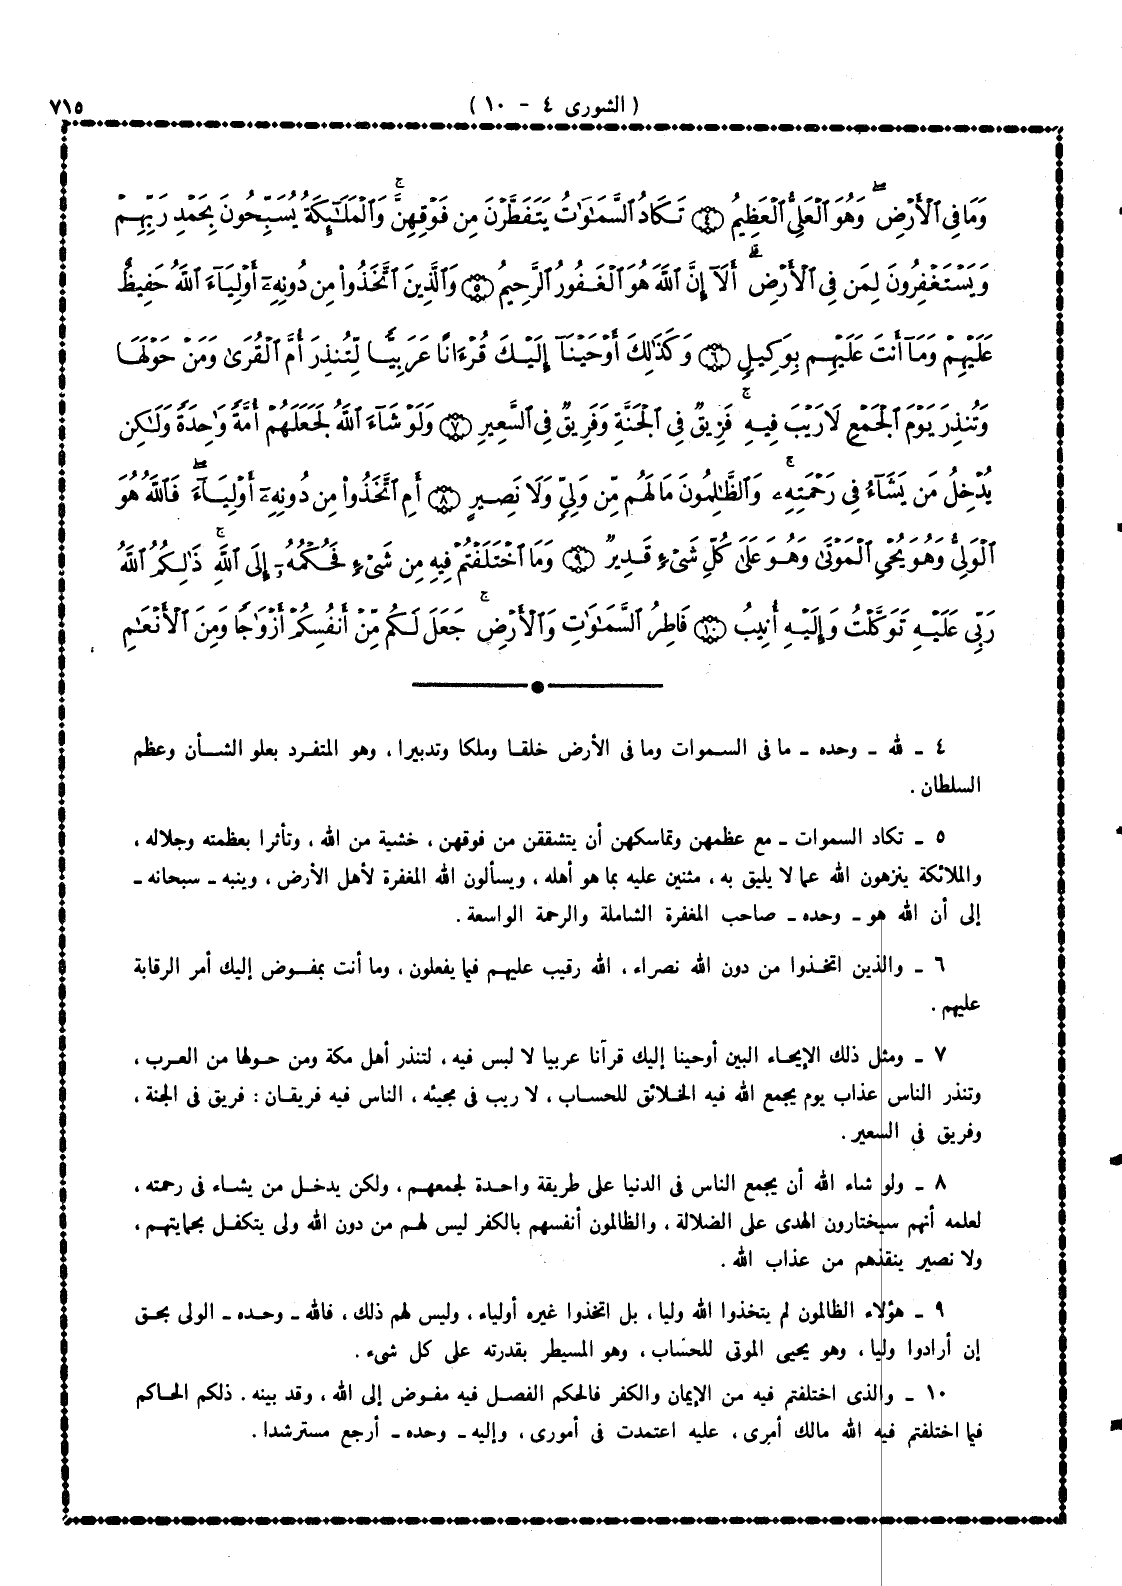 ( الشورى ٤ - ١٠ )
٧١٥
وَمَا فِي الْأَرْضِ ۖ وَهُوَ الْعَلِيُّ الْعَظِيمُ ٤ تَكَادُ السَّمَٰوَٰتُ يَتَفَطَّرْنَ مِن فَوْقِهِنَّ ۚ وَالْمَلَٰٓئِكَةُ يُسَبِّحُونَ بِحَمْدِ رَبِّهِمْ
وَيَسْتَغْفِرُونَ لِمَن فِي الْأَرْضِ ۗ أَلَآ إِنَّ اللَّهَ هُوَ الْغَفُورُ الرَّحِيمُ ٥ وَالَّذِينَ اتَّخَذُوا۟ مِن دُونِهِۦٓ أَوْلِيَآءَ اللَّهُ حَفِيظٌ
عَلَيْهِمْ وَمَآ أَنتَ عَلَيْهِم بِوَكِيلٍ ٦ وَكَذَٰلِكَ أَوْحَيْنَآ إِلَيْكَ قُرْءَانًا عَرَبِيًّا لِّتُنذِرَ أُمَّ الْقُرَىٰ وَمَنْ حَوْلَهَا
وَتُنذِرَ يَوْمَ الْجَمْعِ لَا رَيْبَ فِيهِ ۚ فَرِيقٌ فِي الْجَنَّةِ وَفَرِيقٌ فِي السَّعِيرِ ٧ وَلَوْ شَآءَ اللَّهُ لَجَعَلَهُمْ أُمَّةً وَٰحِدَةً وَلَٰكِن
يُدْخِلُ مَن يَشَآءُ فِي رَحْمَتِهِۦ ۚ وَالظَّٰلِمُونَ مَا لَهُم مِّن وَلِيٍّ وَلَا نَصِيرٍ ٨ أَمِ اتَّخَذُوا۟ مِن دُونِهِۦٓ أَوْلِيَآءَ ۖ فَاللَّهُ هُوَ
الْوَلِيُّ وَهُوَ يُحْيِ الْمَوْتَىٰ وَهُوَ عَلَىٰ كُلِّ شَيْءٍ قَدِيرٌ ٩ وَمَا اخْتَلَفْتُمْ فِيهِ مِن شَيْءٍ فَحُكْمُهُۥٓ إِلَى اللَّهِ ۚ ذَٰلِكُمُ اللَّهُ
رَبِّي عَلَيْهِ تَوَكَّلْتُ وَإِلَيْهِ أُنِيبُ ١٠ فَاطِرُ السَّمَٰوَٰتِ وَالْأَرْضِ ۚ جَعَلَ لَكُم مِّنْ أَنفُسِكُمْ أَزْوَٰجًا وَمِنَ الْأَنْعَٰمِ
٤ - لله - وحده - ما فى السموات وما فى الأرض خلقا وملكا وتدبيرا ، وهو المتفرد بعلو الشأن وعظم
السلطان .
٥ - تكاد السموات - مع عظمهن وتماسكهن أن يتشققن من فوقهن ، خشية من الله ، وتأثرا بعظمته وجلاله ،
والملائكة ينزهون الله عما لا يليق به ، مثنين عليه بما هو أهله ، ويسألون الله المغفرة لأهل الأرض ، وينبه - سبحانه -
إلى أن الله هو - وحده - صاحب المغفرة الشاملة والرحمة الواسعة .
٦ - والذين اتخذوا من دون الله نصراء ، الله رقيب عليهم فيما يفعلون ، وما أنت بمفوض إليك أمر الرقابة
عليهم .
٧ - ومثل ذلك الإيحاء البين أوحينا إليك قرآنا عربيا لا لبس فيه ، لتنذر أهل مكة ومن حولها من العرب ،
وتنذر الناس عذاب يوم يجمع الله فيه الخلائق للحساب ، لا ريب فى مجيئه ، الناس فيه فريقان : فريق فى الجنة ،
وفريق فى السعير .
٨ - ولو شاء الله أن يجمع الناس فى الدنيا على طريقة واحدة لجمعهم ، ولكن يدخل من يشاء فى رحمته ،
لعلمه أنهم سيختارون الهدى على الضلالة ، والظالمون أنفسهم بالكفر ليس لهم من دون الله ولى يتكفل بحمايتهم ،
ولا نصير ينقذهم من عذاب الله .
٩ - هؤلاء الظالمون لم يتخذوا الله وليا ، بل اتخذوا غيره أولياء ، وليس لهم ذلك ، فالله - وحده - الولى بحق
إن أرادوا وليا ، وهو يحيى الموتى للحساب ، وهو المسيطر بقدرته على كل شىء .
١٠ - والذى اختلفتم فيه من الإيمان والكفر فالحكم الفصل فيه مفوض إلى الله ، وقد بينه . ذلكم الحاكم
فيما اختلفتم فيه الله مالك أمرى ، عليه اعتمدت فى أمورى ، وإليه - وحده - أرجع مسترشدا .